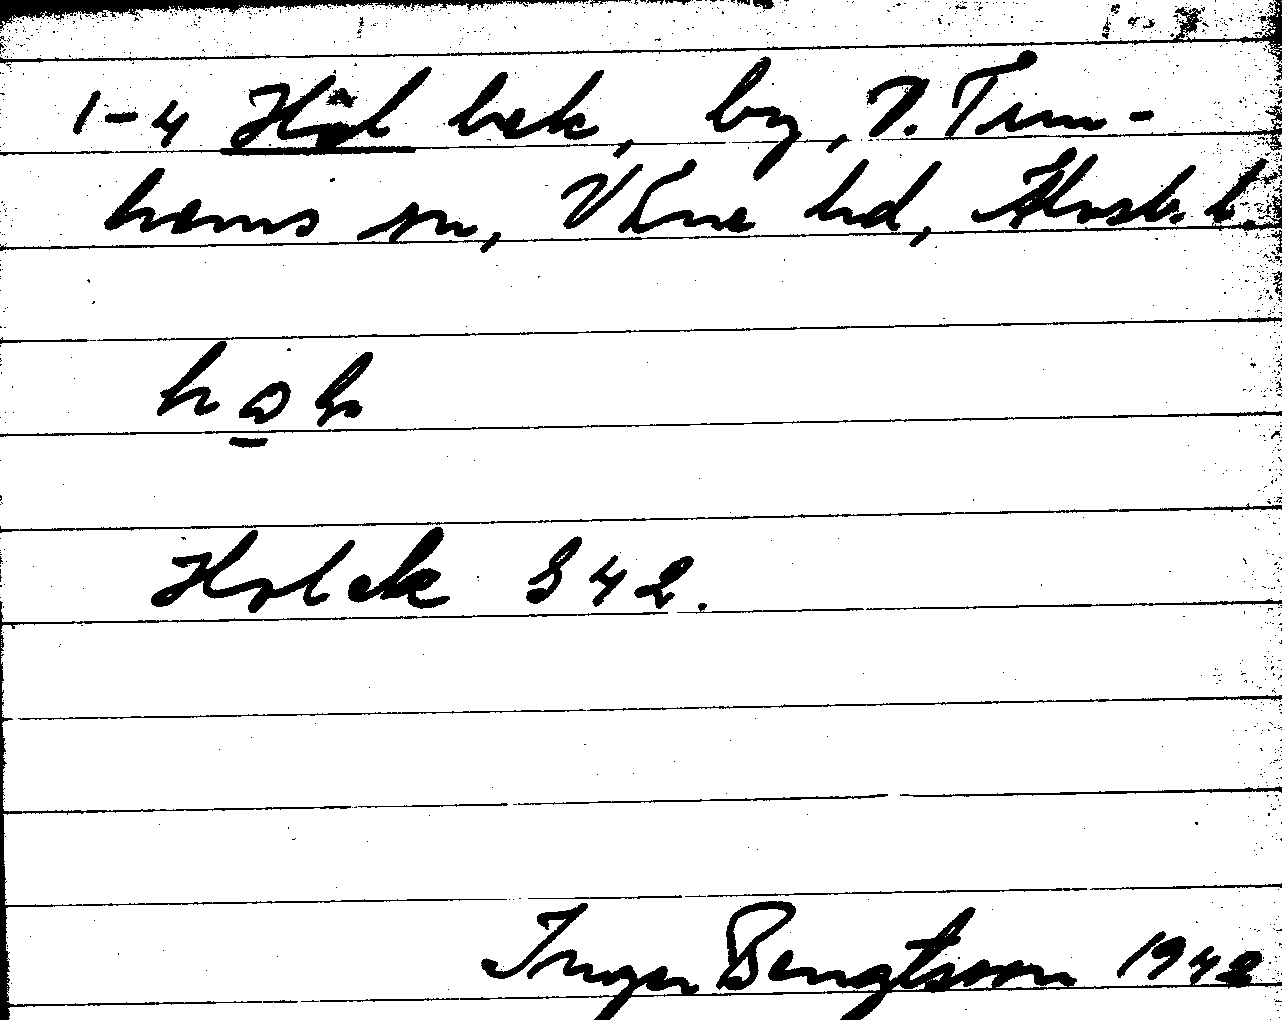 1-4 Hol bek, by, V. Tun-
hems sn, Väne hd, Älvsb. l.
hob
Holck 342.
Inger Bengtsson 1942